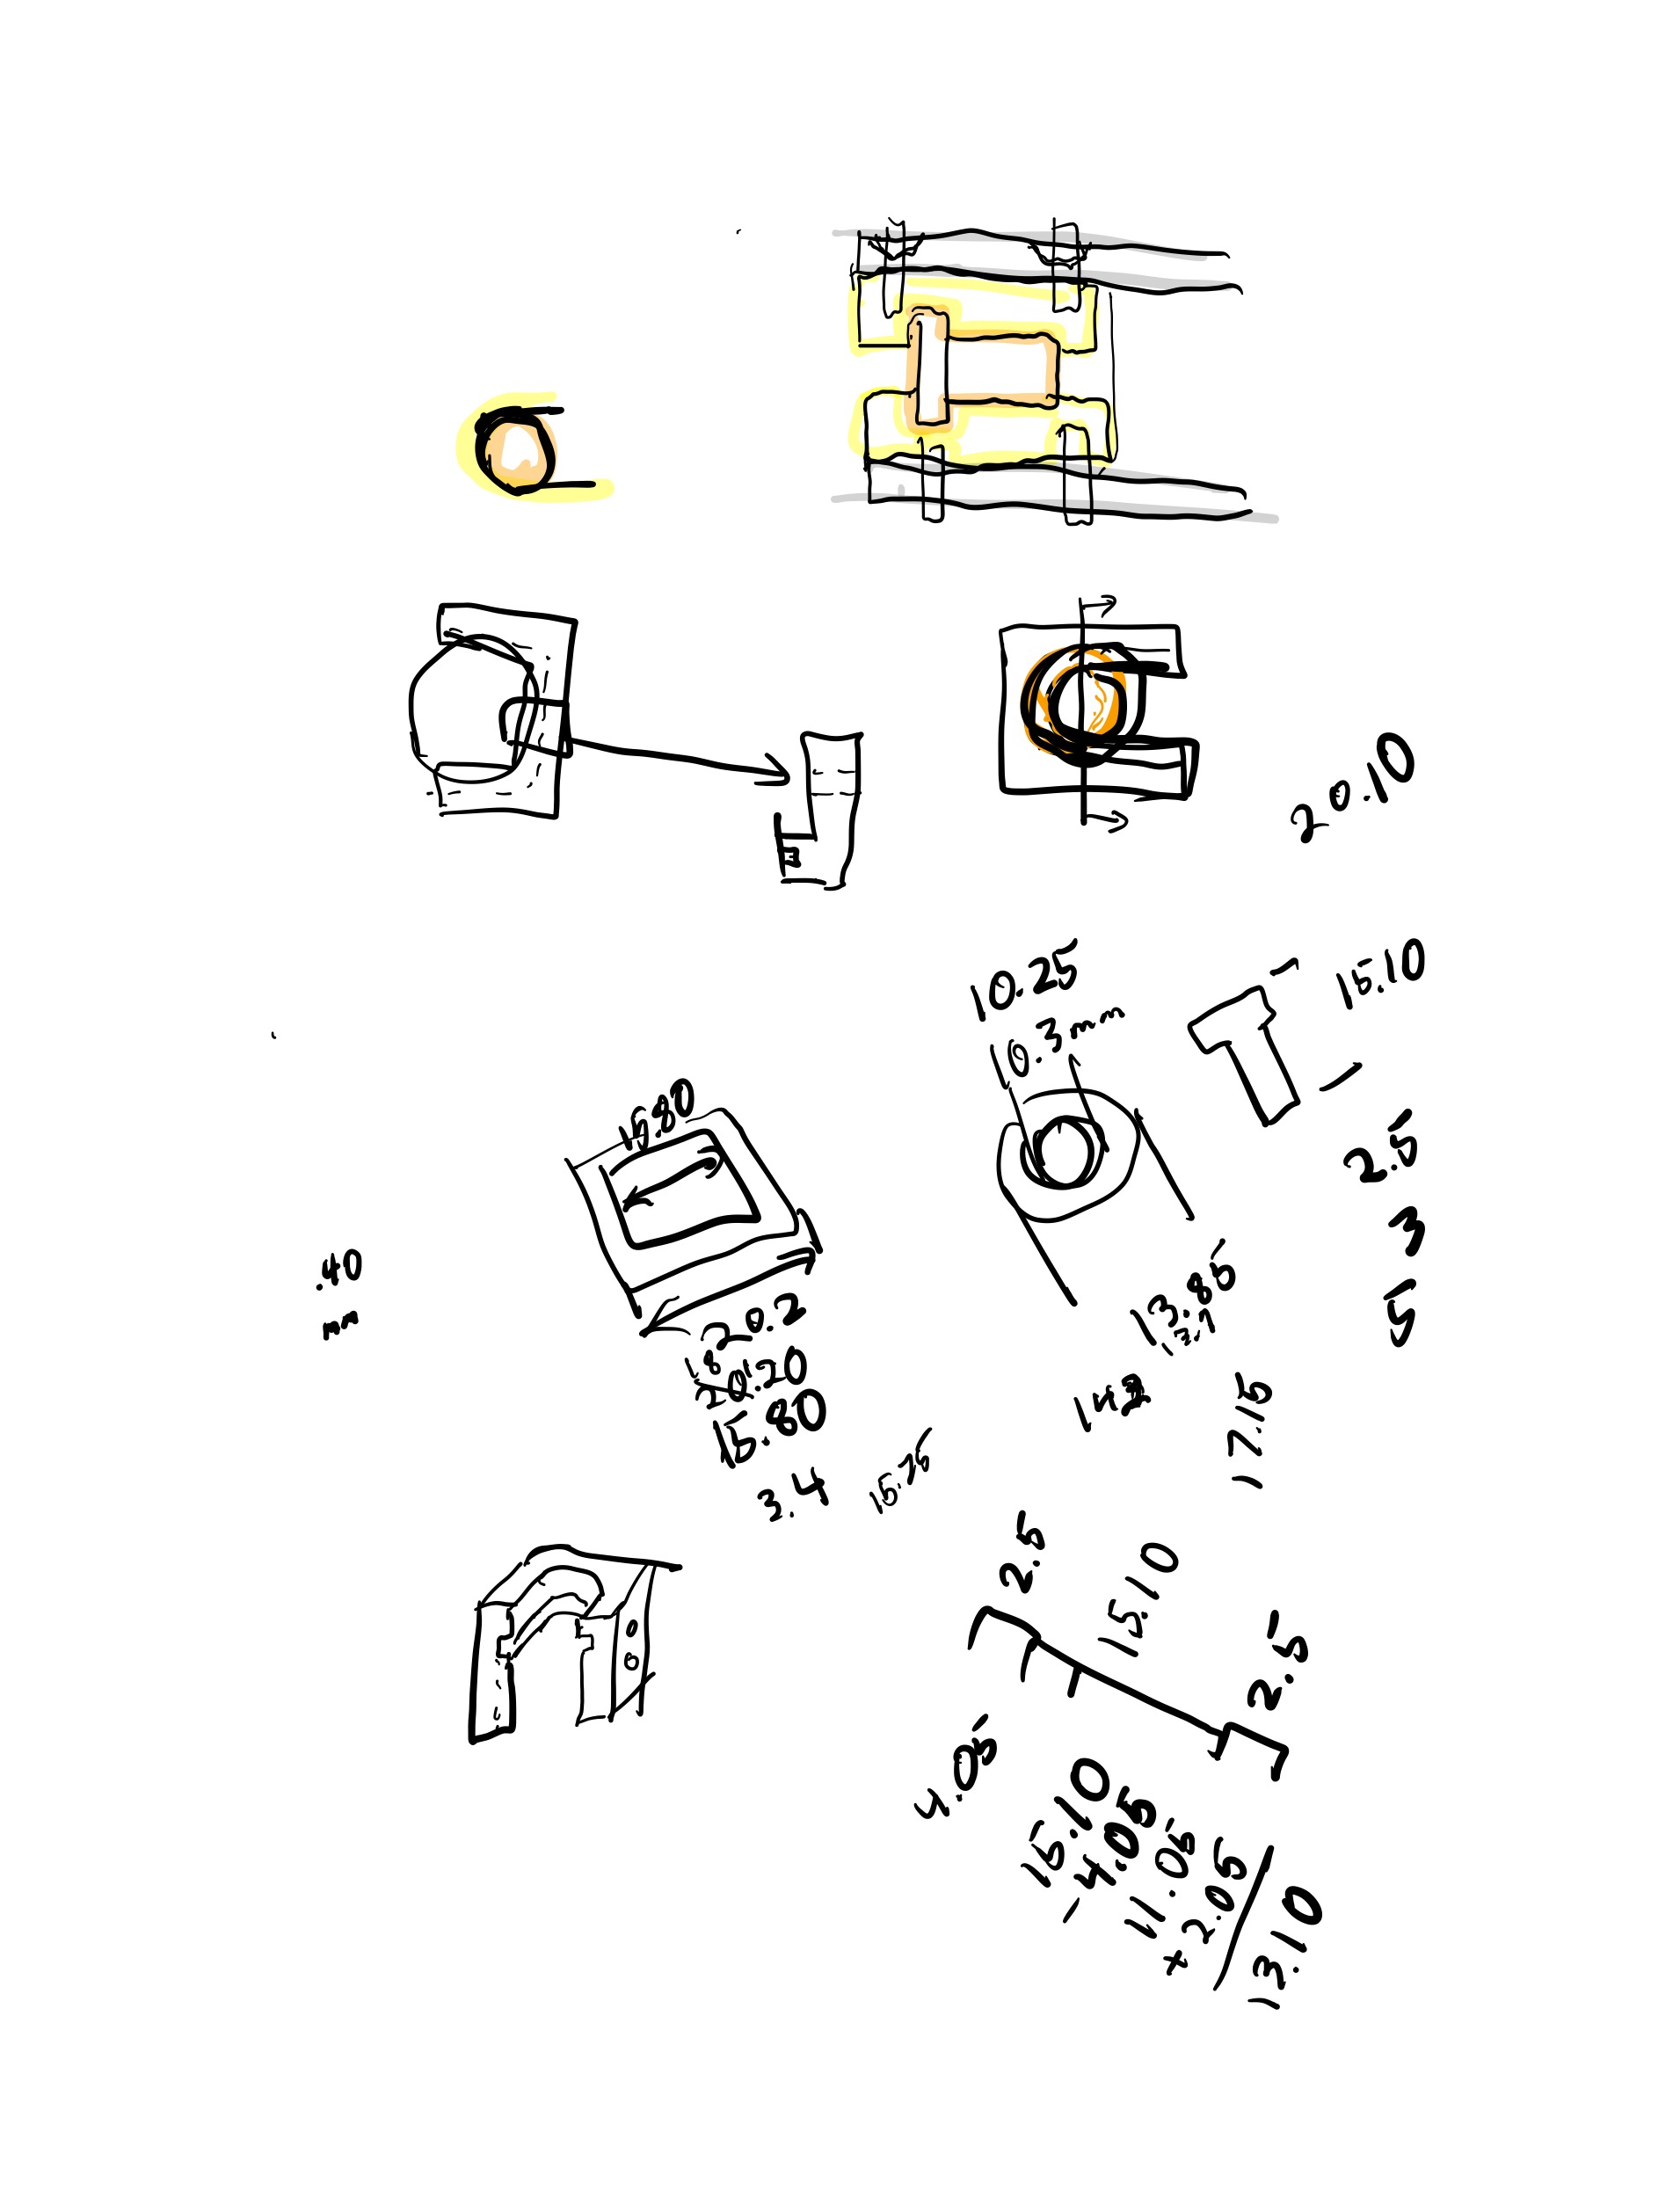 20.10
10.25
10.3mm
15.10
15.80
2.5
3
5
.40
mm
20.2
18
20.20
15.80
3.4
15.75
13.85
17.15
2.5
15.10
2.5
4.05
15.10
- 4.05
11.05
+ 2.05
13.10